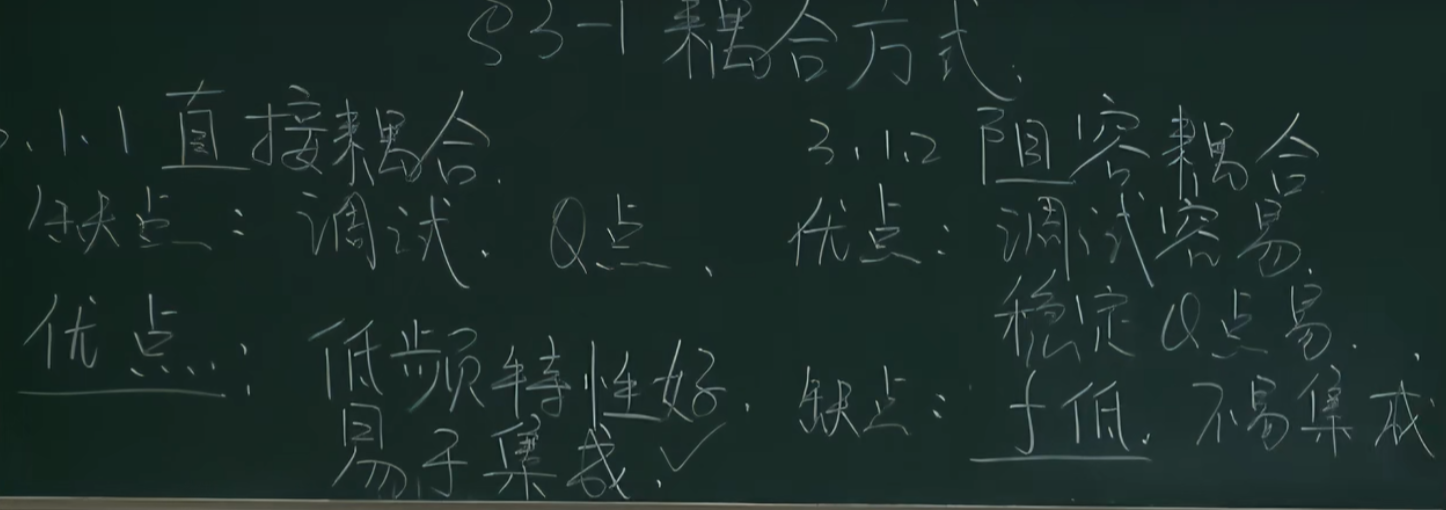 §3-1 耦合方式.
3.1.1 直接耦合.
缺点: 调试. Q点、
优点: 低频特性好.
易于集成. ✓
3.1.2 阻容耦合
优点: 调试容易.
稳定Q点易.
缺点: f低. 不易集成